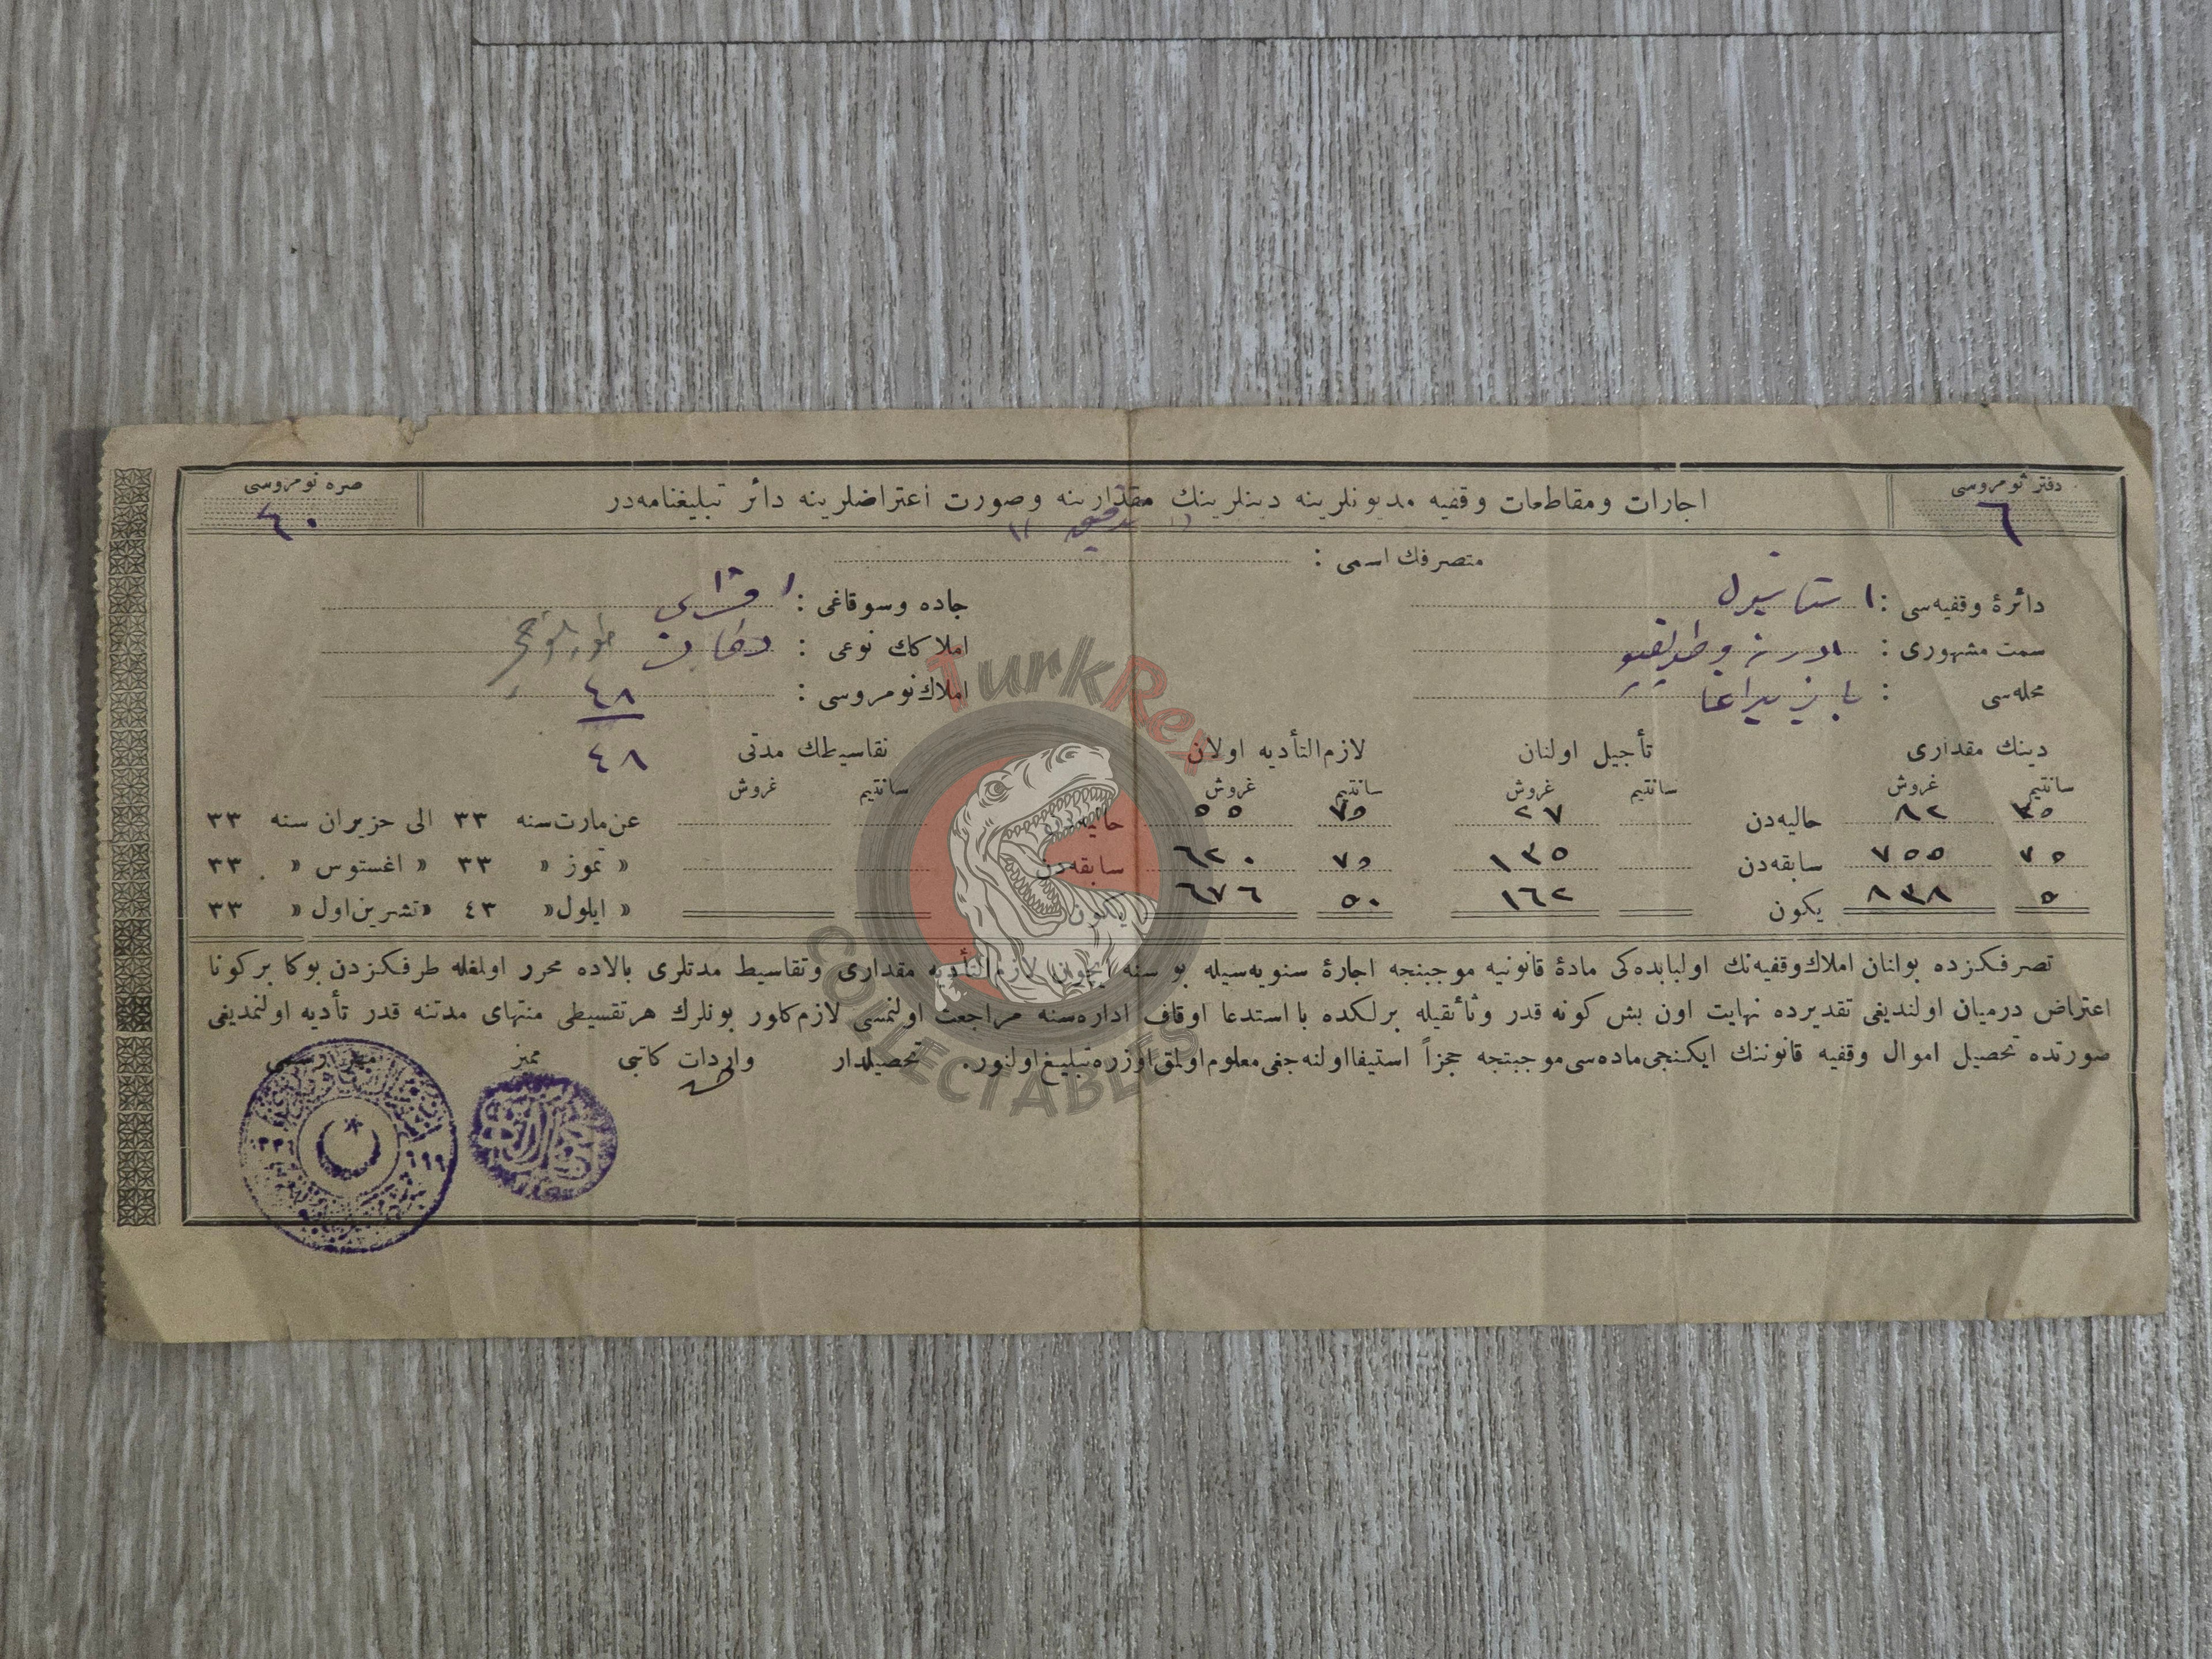 دفتر نومروسی
٦
اجارات ومقاطعات وقفیه مدیونلرینه دینلرینك مقدارینه وصورت اعتراضلرینه دائر تبلیغنامه‌در
صره نومروسی
٤٠
متصرفك اسمی :
دائرهٔ وقفیه‌سی : استانبول
جاده وسوقاغی :
سمت مشهوری : ادرنه
املاكك نوعی : دكان
محله‌سی :
املاك نومروسی : ٤٨
٤٨
دینك مقداری
تأجیل اولنان
لازم‌التأدیه اولان
تقاسیطك مدتی
سانتیم غروش سانتیم غروش سانتیم غروش سانتیم غروش
٣٥ ٨٢ حالیه‌دن ٢٧ ٧٥ ٥٥ حالیه‌دن عن‌مارت‌سنه ٣٣ الی حزیران سنه ٣٣
٧٥ ٧٥٥ سابقه‌دن ١٣٥ ٧٥ ٦٢٠ سابقه‌دن « تموز « ٣٣ « اغستوس « ٣٣
٥ ٨٣٨ یكون ١٦٢ ٥٠ ٦٧٦ یكون « ایلول « ٤٣ «تشرین‌اول « ٣٣
تصرفكزده بولنان املاك‌وقفیه‌نك اولبابده‌كی مادهٔ قانونیه موجبنجه اجارهٔ سنویه‌سیله بو سنه ایچون لازم‌التأدیه مقداری وتقاسیط مدتلری بالاده محرر اولمغله طرفكزدن بوكا بركونا
اعتراض درمیان اولندیغی تقدیرده نهایت اون بش كونه قدر وثائقیله برلكده با استدعا اوقاف اداره‌سنه مراجعت اولنمسی لازم‌كلور بونلرك هرتقسیطی منتهای مدتنه قدر تأدیه اولنمدیغی
صورتده تحصیل اموال وقفیه قانوننك ایكنجی‌ماده‌سی‌موجبنجه حجزاً استیفااولنه‌جغی‌معلوم‌اولمق‌اوزره‌تبلیغ‌اولنور.
تحصیلدار واردات كاتبی ممیز
TurkRex
COLLECTABLES